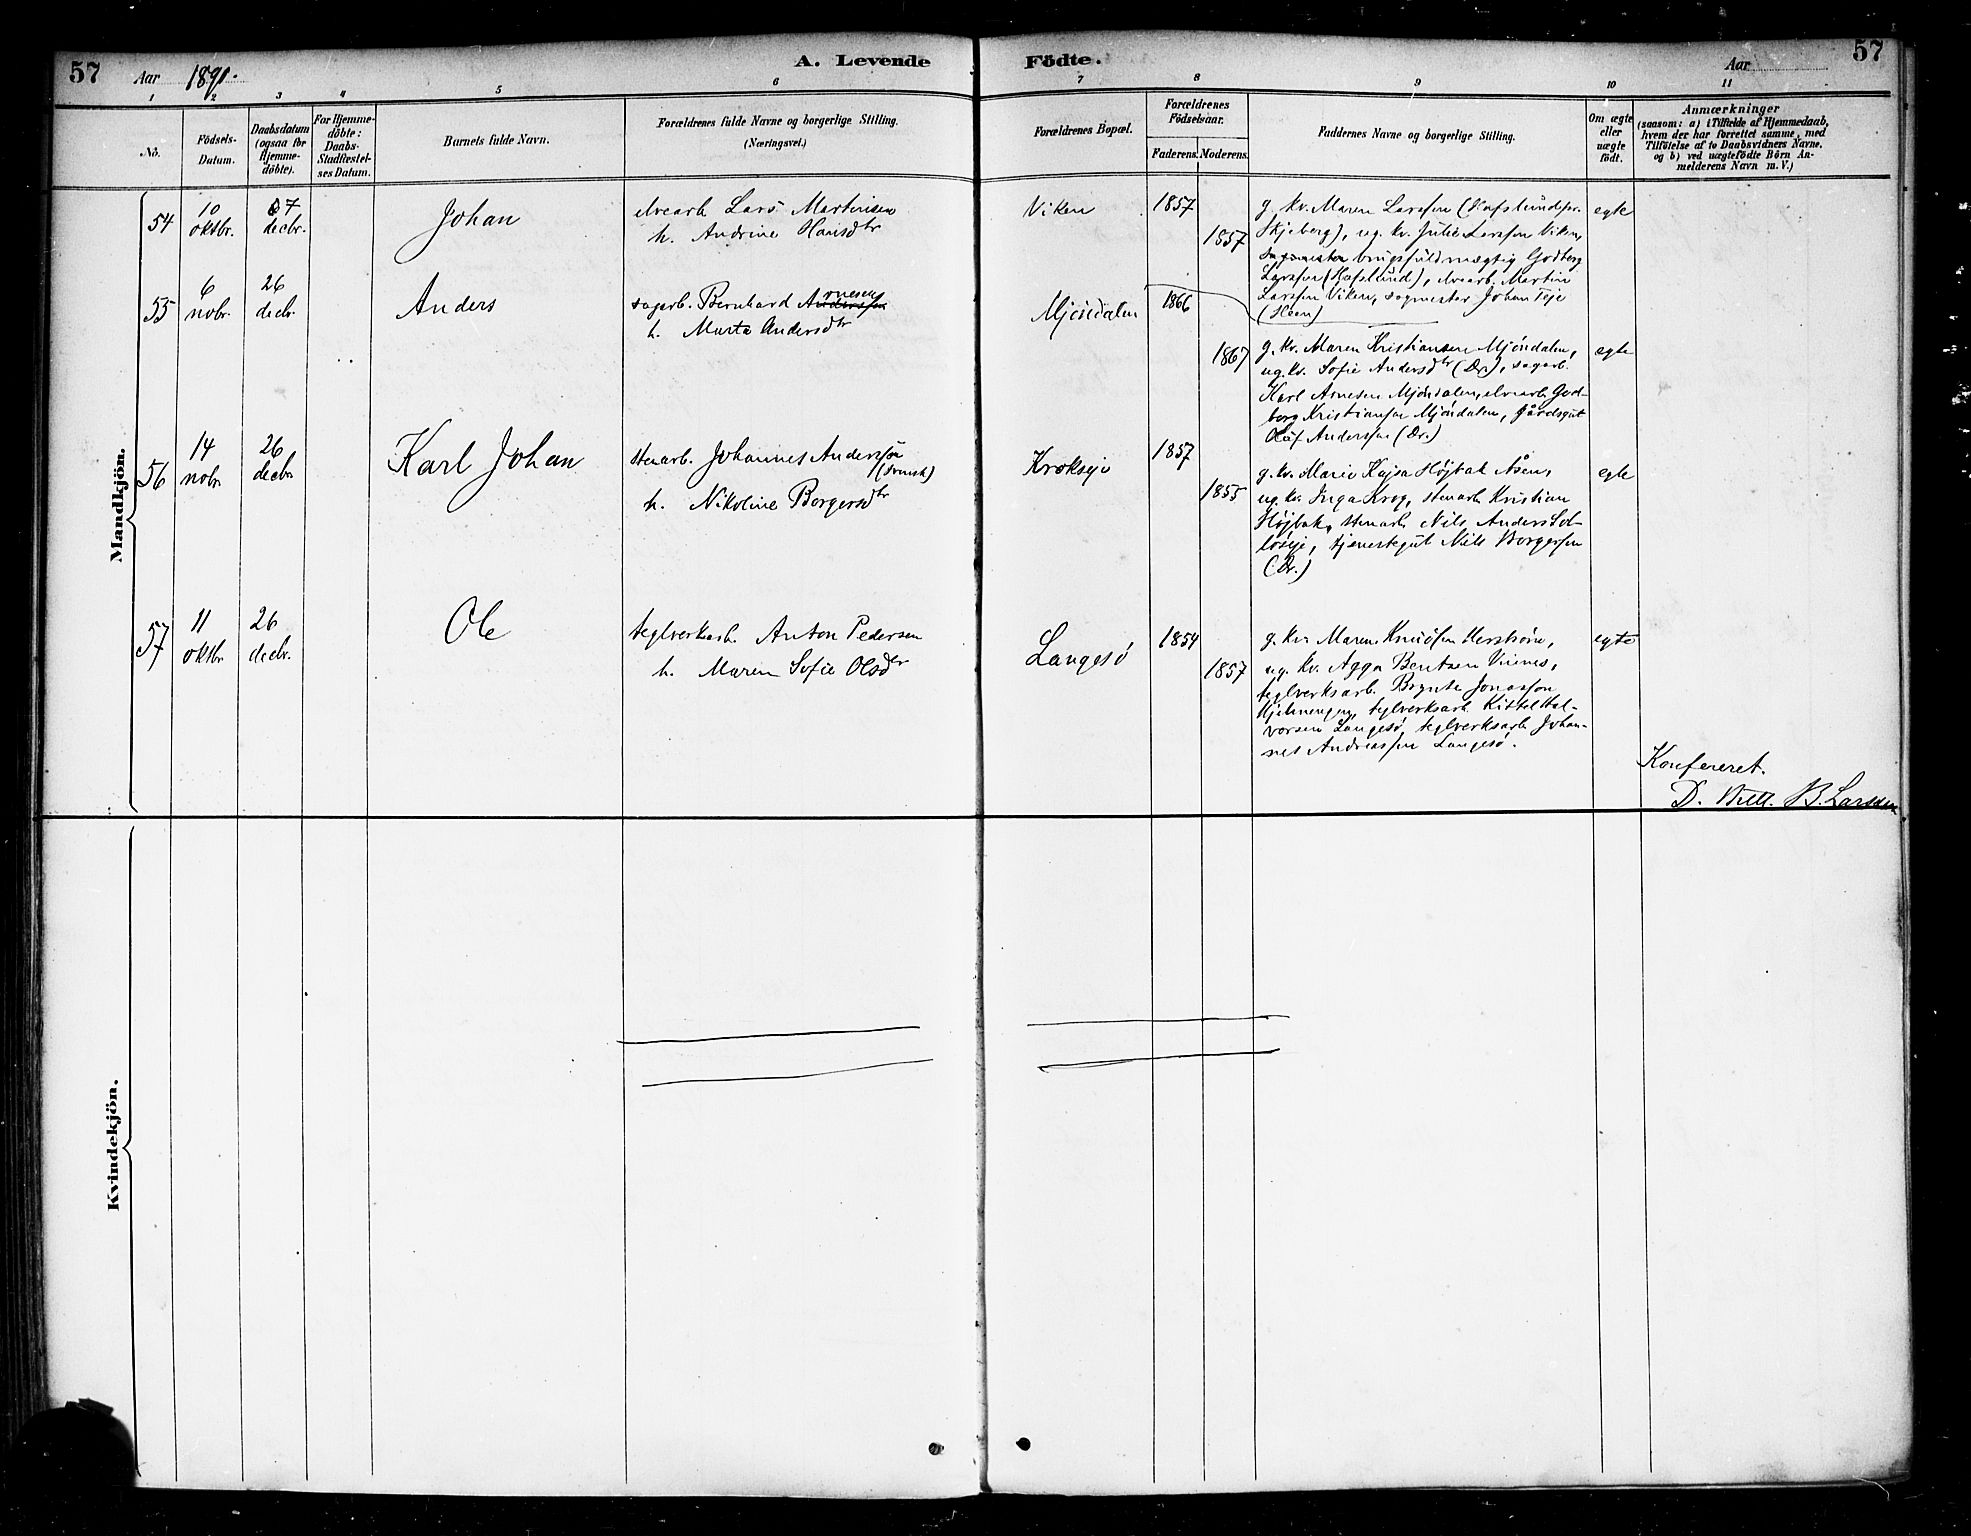 57 Aar 1891. A. Levende Födte. Aar 57
1 2 3 4 5 6 7 8 9 10 11
No.
Födsels-
Datum.
Daabsdatum
(ogsaa for
Hjemme-
döbte).
For Hjemme-
döbte:
Daabs-
Stadfæstel-
ses Datum.
Barnets fulde Navn.
Forældrenes fulde Navne og borgerlige Stilling.
(Næringsvei.)
Forældrenes Bopæl.
Forældrenes
Födselsaar.
Faderens. Moderens.
Faddernes Navne og borgerlige Stilling.
Om ægte
eller
uægte
födt.
Anmærkninger
(saasom: a) i Tilfælde af Hjemmedaab,
hvem der har forrettet samme, med
Tilföielse af to Daabsvidners Navne,
og b) ved uægtefödte Börn An-
melderens Navn m. V.)
Mandkjön.
54
10
oktbr.
27
decbr.
Johan
elvearb. Lars Martinsen
h. Andrine Hansdtr
Viken
1857
1857
g. kv. Maren Larssen (Hafslundsør.
Skjeberg), ug. kv. Julie Larssen Viken,
brugsfuldmægtig Godberg
Larssen (Hafslund), elvearb. Martin
Larssen Viken, sagmester Johan Teje
(Heen)
egte
55
6
nobr.
26
decbr.
Anders
sagarb. Bernhard Arnesen
h. Marta Andersdtr
Mjöndalen
1866
1867
g. kv. Maren Kristiansen Mjöndalen,
ug. kv. Sofie Andersdtr (Dr.), sagarb.
Karl Arnesen Mjöndalen, elvearb. God-
berg Kristiansen Mjöndalen, gårdsgut
Oluf Anderssen (Dr.)
egte
56
14
nobr.
26
decbr.
Karl Johan
stenarb. Johannes Andersson
(svensk)
h. Nikoline Borgersdtr
Krokseje
1857
1855
g. kv. Marie Kajsa Højbak Åsen,
ug. kv. Inga Krog, stenarb. Kristian
Højbak, stenarb. Nils Anders Sol-
löseje, tjenestegut Nils Borgerssen
(Dr.)
egte
57
11
oktbr.
26
decbr.
Ole
teglverksarb. Anton Pedersen
h. Maren Sofie Olsdtr
Langesö
1854
1857
g. kv. Maren Knudsen Herström,
ug. kv. Agga Bentsen Vinnes,
teglverksarb. Brynte Jonasson
teglverksarb. Kittel Hal-
vorsen Langesö, teglverksarb. Johan-
nes Andreassen Langesö.
egte
Konfereret.
D. Will. B. Larssen
Kvindekjön.